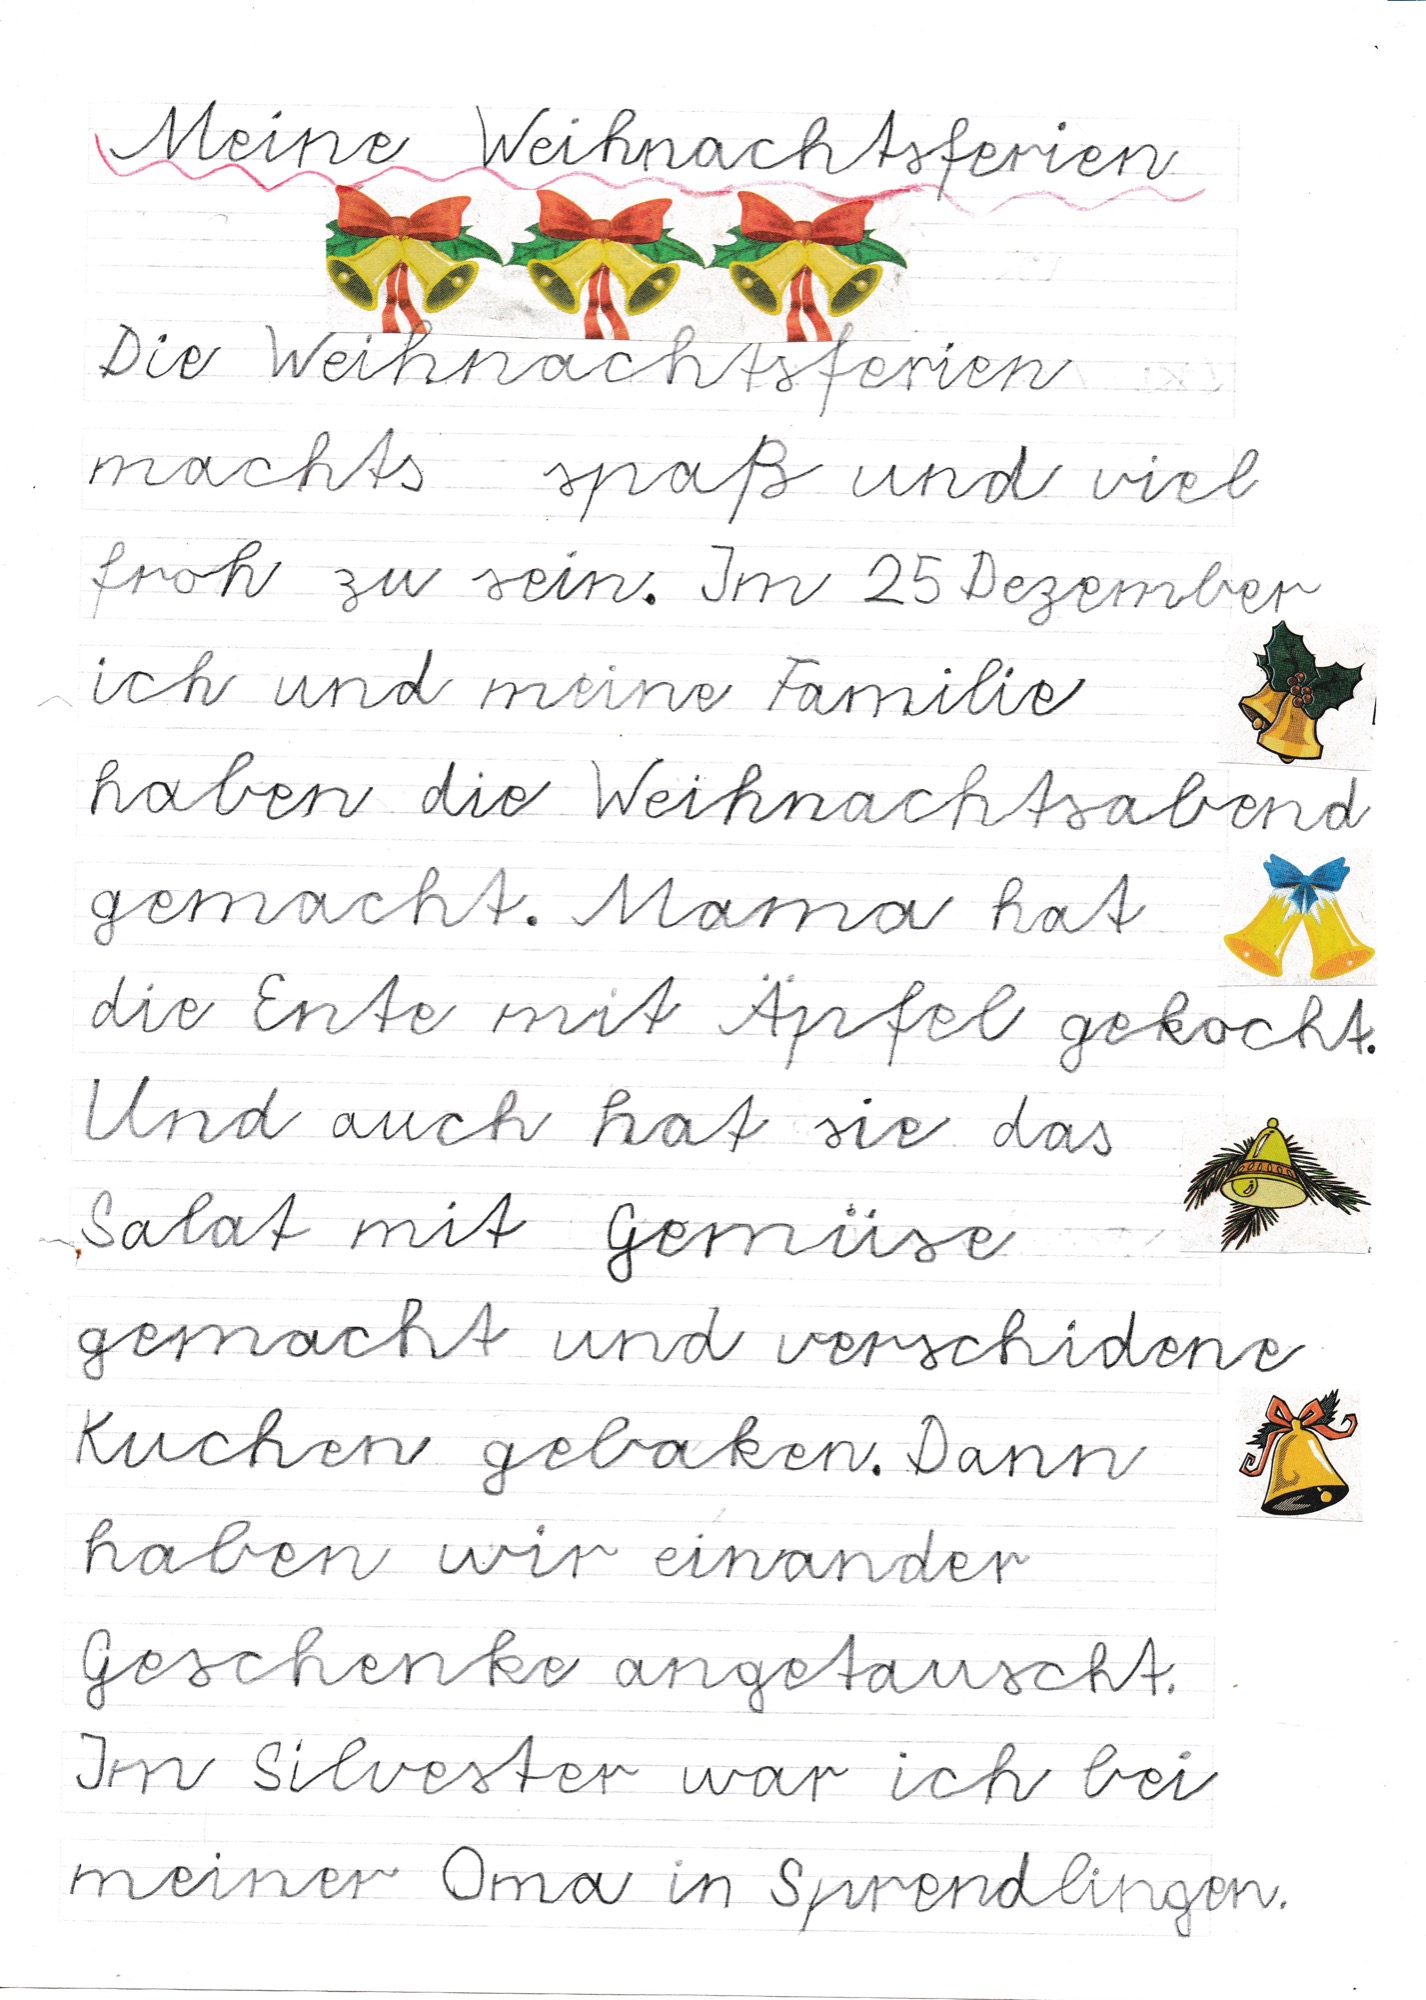 Meine Weihnachtsferien
Die Weihnachtsferien
machts spaß und viel
froh zu sein. Im 25 Dezember
ich und meine Familie
haben die Weihnachtsabend
gemacht. Mama hat
die Ente mit Äpfel gekocht.
Und auch hat sie das
Salat mit Gemüse
gemacht und verschidene
Kuchen gebaken. Dann
haben wir einander
Geschenke angetauscht.
Im Silvester war ich bei
meiner Oma in Sprendlingen.